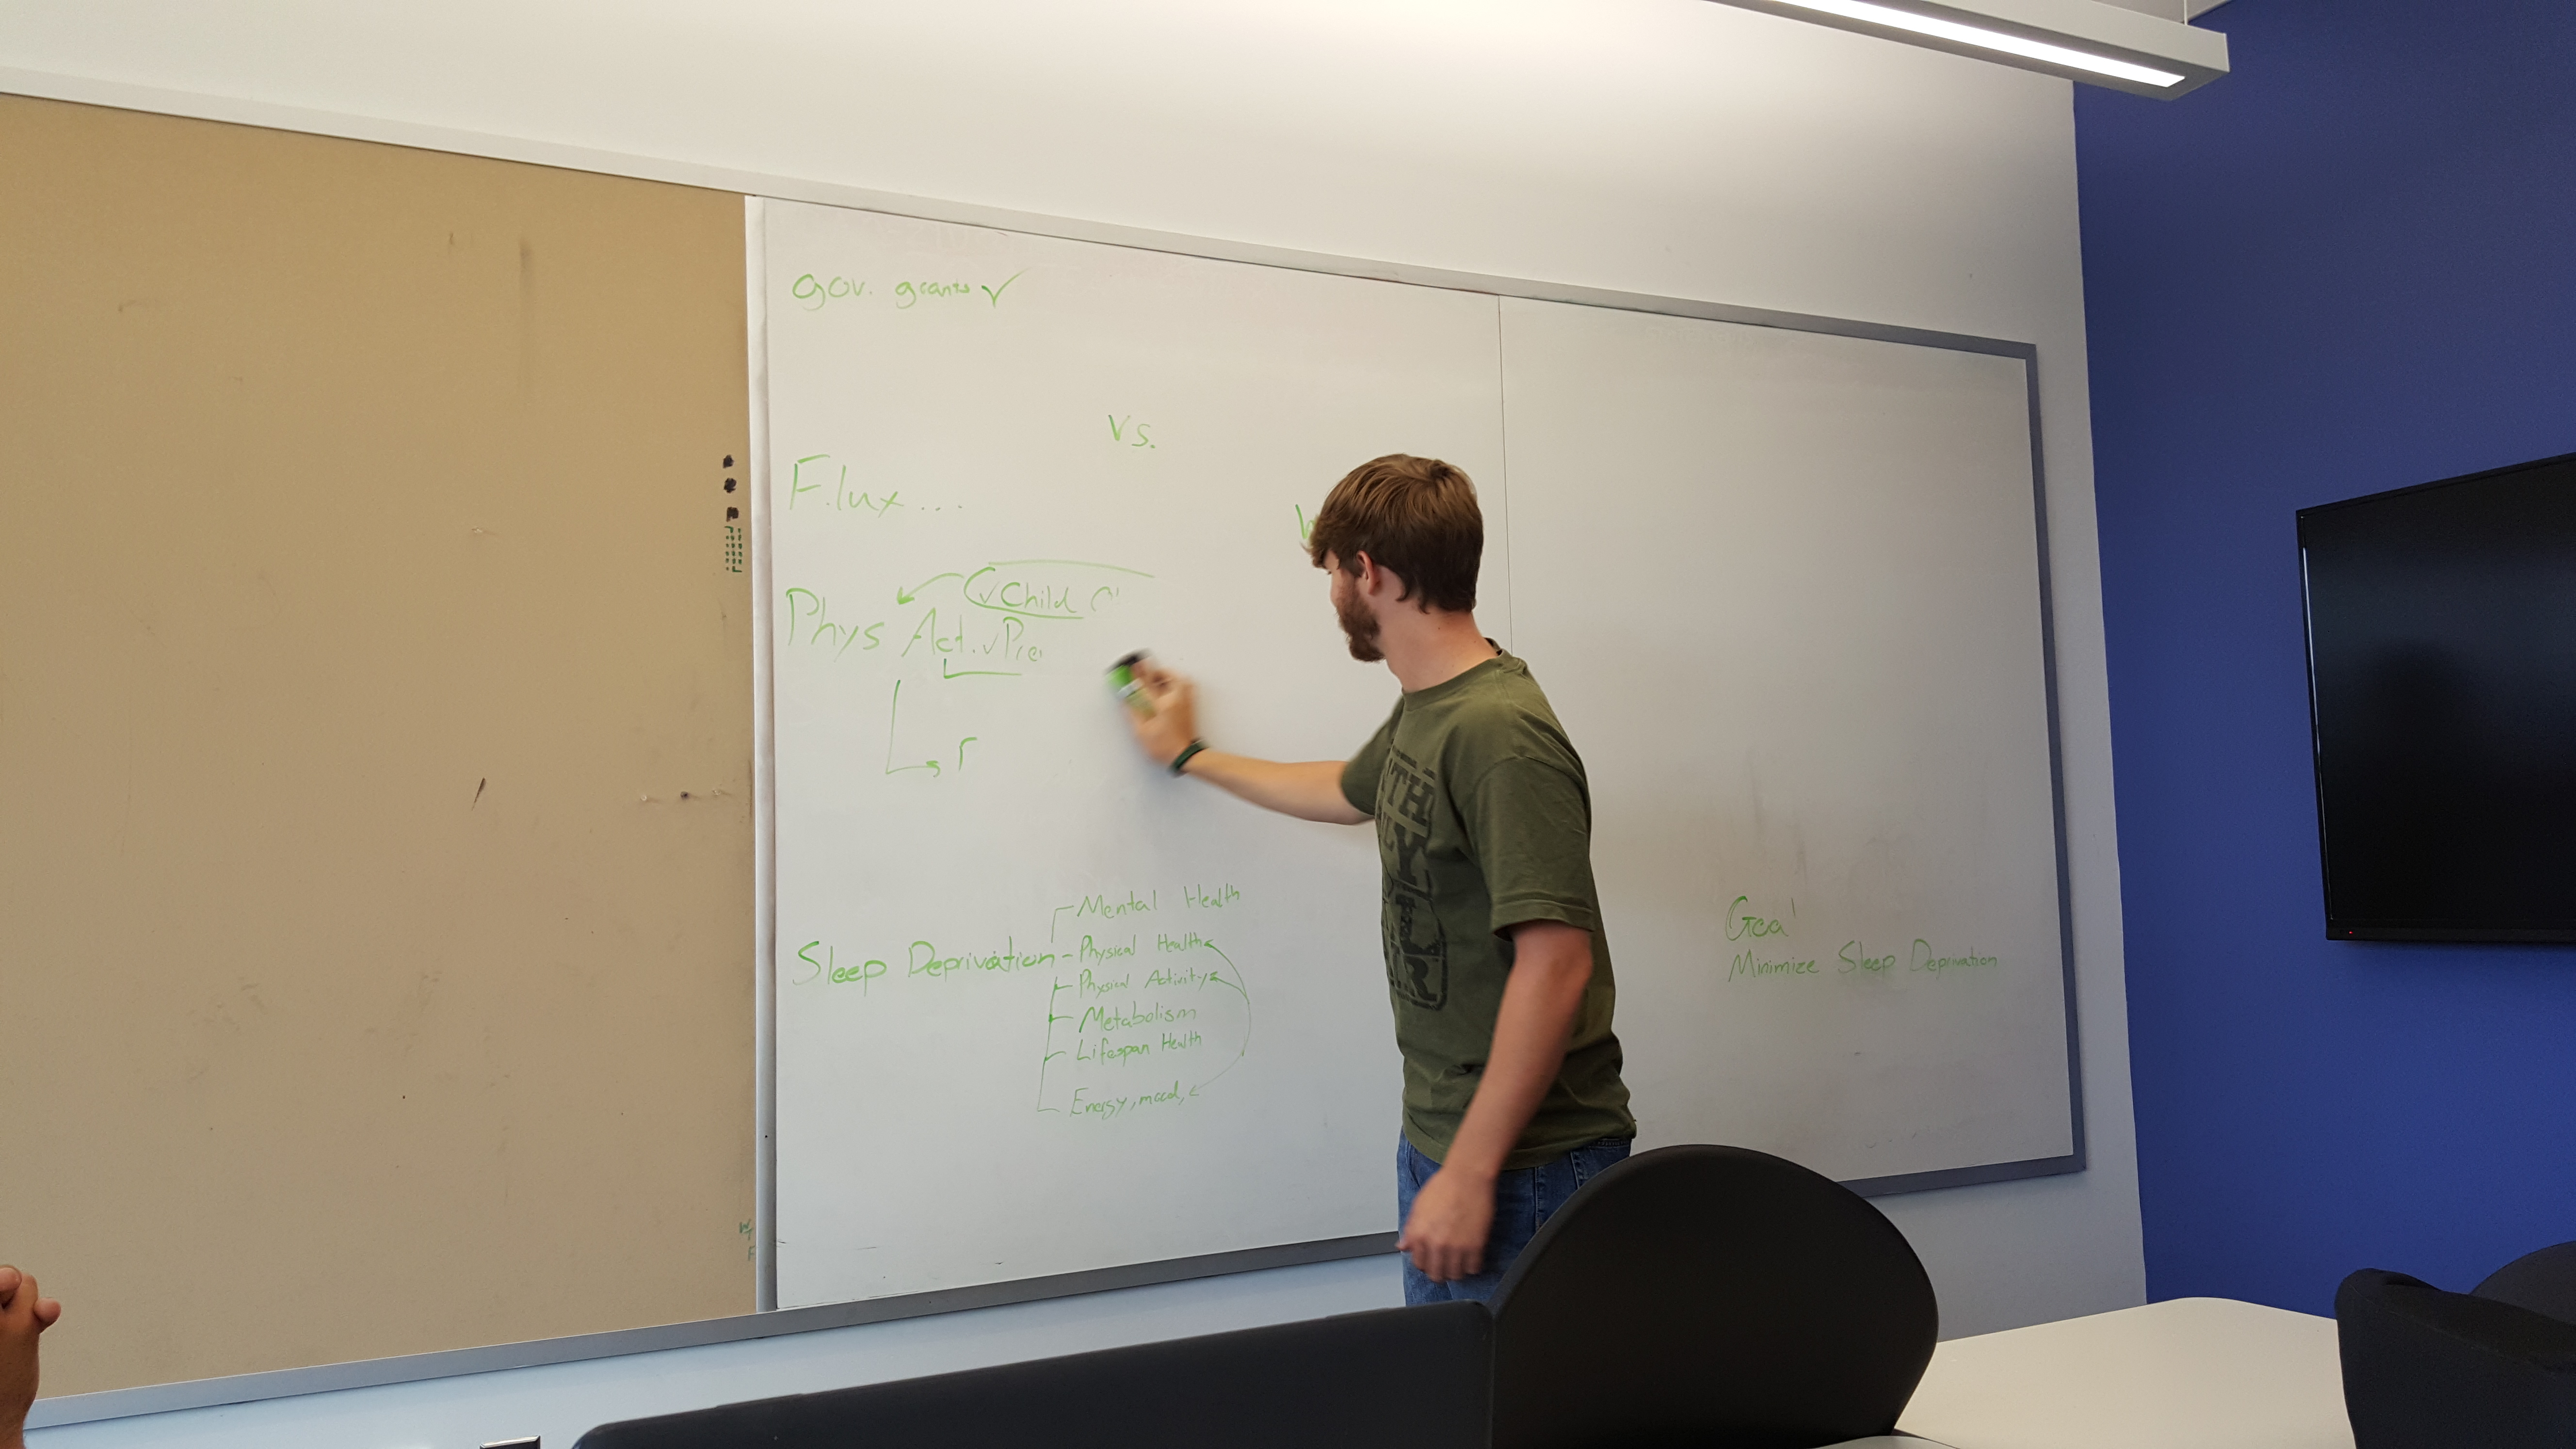 gov. grants ✓
vs.
F.lux ...
✓Child
Phys Act. ✓
Mental Health
Sleep Deprivation - Physical Health
Physical Activity
Metabolism
Lifespan Health
Energy, mood,
Goal
Minimize Sleep Deprivation